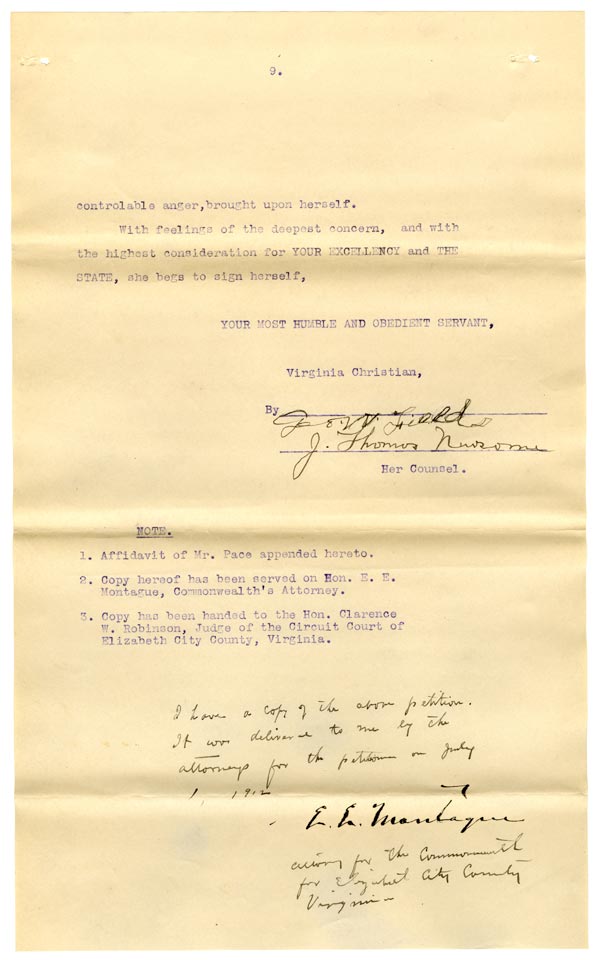 9.
controlable anger,brought upon herself.
With feelings of the deepest concern, and with
the highest consideration for YOUR EXCELLENCY and THE
STATE, she begs to sign herself,
YOUR MOST HUMBLE AND OBEDIENT SERVANT,
Virginia Christian,
By
W. Fields
J. Thomas Newsome
Her Counsel.
NOTE.
1. Affidavit of Mr. Pace appended hereto.
2. Copy hereof has been served on Hon. E. E.
Montague, Commonwealth's Attorney.
3. Copy has been handed to the Hon. Clarence
W. Robinson, Judge of the Circuit Court of
Elizabeth City County, Virginia.
I have a copy of the above petition.
It was delivered to me by the
attorneys for the petitioner on July
1, 1912
E. E. Montague
attorney for the Commonwealth
for Elizabeth City County
Virginia